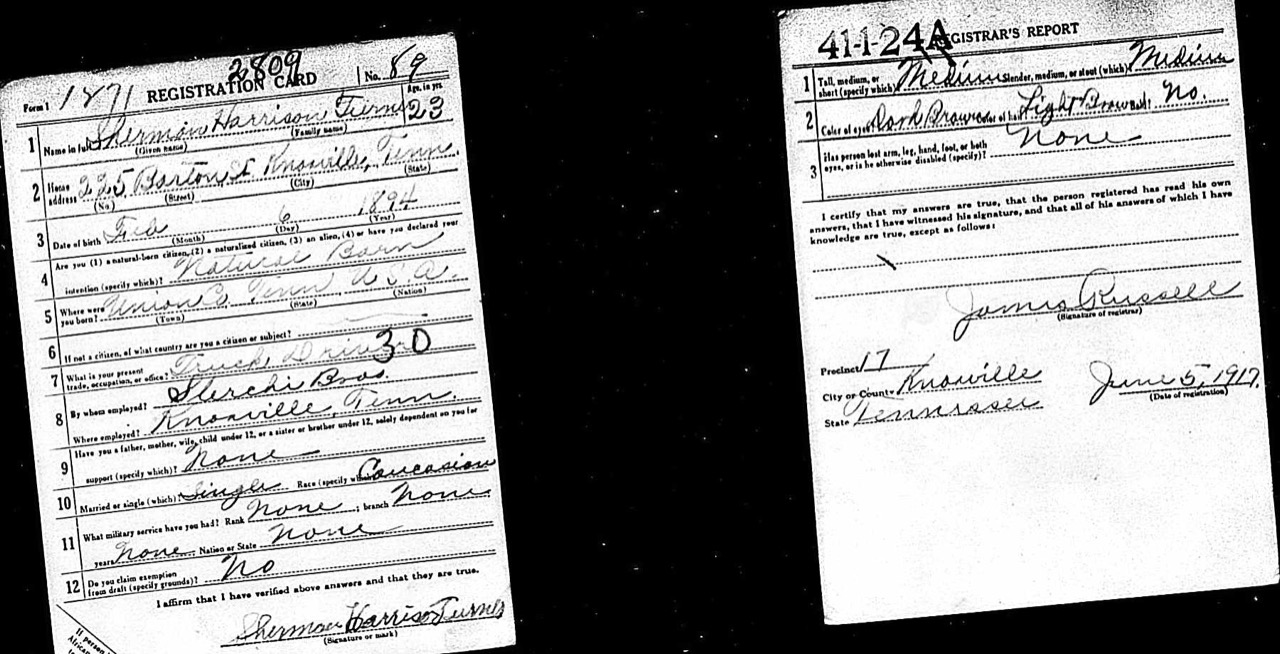 2809
Form 1 1871 REGISTRATION CARD No. 89
1 Name in full Sherman Harrison Turner Age, in yrs. 23
(Given name) (Family name)
2 Home address 225 Barton St. Knoxville, Tenn.
(No.) (Street) (City) (State)
3 Date of birth Feb 6 1894
(Month) (Day) (Year)
4 Are you (1) a natural-born citizen, (2) a naturalized citizen, (3) an alien, (4) or have you declared your
intention (specify which)? Natural Born
5 Where were you born? Union Co. Tenn U.S.A.
(Town) (State) (Nation)
6 If not a citizen, of what country are you a citizen or subject?
7 What is your present trade, occupation, or office? Truck Driver 30
8 By whom employed? Sterchi Bros.
Where employed? Knoxville, Tenn.
9 Have you a father, mother, wife, child under 12, or a sister or brother under 12, solely dependent on you for
support (specify which)? None
10 Married or single (which)? Single Race (specify which)? Caucasian
11 What military service have you had? Rank None ; branch None
years None Nation or State None
12 Do you claim exemption from draft (specify grounds)? No
I affirm that I have verified above answers and that they are true.
Sherman Harrison Turner
(Signature or mark)
If person
African
41-1-24A REGISTRAR'S REPORT
1 Tall, medium, or short (specify which)? Medium Slender, medium, or stout (which)? Medium
2 Color of eyes? Dark Brown Color of hair? Light Brown Bald? No.
3 Has person lost arm, leg, hand, foot, or both
eyes, or is he otherwise disabled (specify)? None
I certify that my answers are true, that the person registered has read his own
answers, that I have witnessed his signature, and that all of his answers of which I have
knowledge are true, except as follows:
James Russell
(Signature of registrar)
Precinct 17
City or County Knoxville
State Tennessee
June 5, 1917.
(Date of registration)